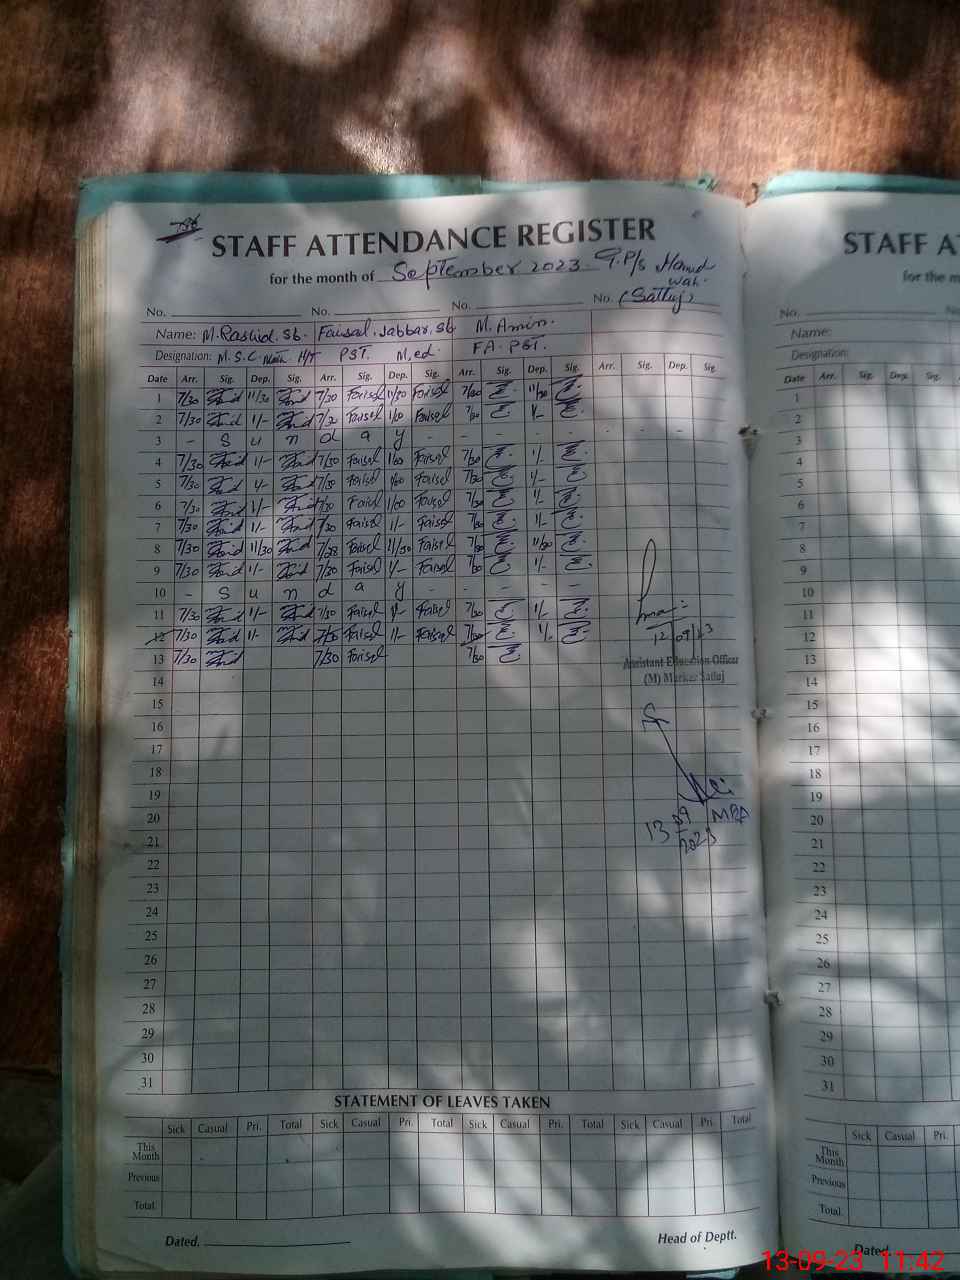 STAFF ATTENDANCE REGISTER
for the month of September 2023. G.P/S Hamid
wah.
No. No. No. No. (Satluj)
Name: M. Rashid. Sb. Faisal. Jabbar. Sb M. Amin.
Designation: M.S.C. PST. M.ed. FA. PST.
Date Arr. Sig. Dep. Sig. Arr. Sig. Dep. Sig. Arr. Sig. Dep. Sig. Arr. Sig. Dep. Sig.
1 7/30 11/30 7/30 Faisal 11/30 Faisal 7/30 11/30
2 7/30 1/- 7/30 Faisal 1/00 Faisal 7/30 1/-
3 - S u n d a y - - - - - - - -
4 7/30 1/- 7/30 Faisal 1/00 Faisal 7/30 1/-
5 7/30 1/- 7/30 Faisal 1/00 Faisal 7/30 1/-
6 7/30 1/- 7/30 Faisal 1/00 Faisal 7/30 1/-
7 7/30 1/- 7/30 Faisal 1/- Faisal 7/30 1/-
8 7/30 11/30 Faisal 11/30 Faisal 7/30 11/30
9 7/30 1/- 7/30 Faisal 1/- Faisal 7/30 1/-
10 - S u n d a y - - - - -
11 7/30 1/- 7/30 Faisal 1/- Faisal 7/30 1/-
12 7/30 1/- Faisal 1/- Faisal 7/30 1/-
13 7/30 7/30 Faisal 7/30
12/09/23
Assistant Education Officer
(M) Markaz Satluj
14
15
16
17
18
19
20
MEA
13 09
2023
21
22
23
24
25
26
27
28
29
30
31
STATEMENT OF LEAVES TAKEN
Sick Casual Pri. Total Sick Casual Pri. Total Sick Casual Pri. Total Sick Casual Pri. Total
This
Month
Previous
Total.
Dated. Head of Deptt.
STAFF AT
for the m
No. No
Name:
Designation:
Date Arr. Sig. Dep. Sig.
1
2
3
4
5
6
7
8
9
10
11
12
13
14
15
16
17
18
19
20
21
22
23
24
25
26
27
28
29
30
31
Sick Casual Pri.
This
Month
Previous
Total.
Dated
13-09-23 11:42